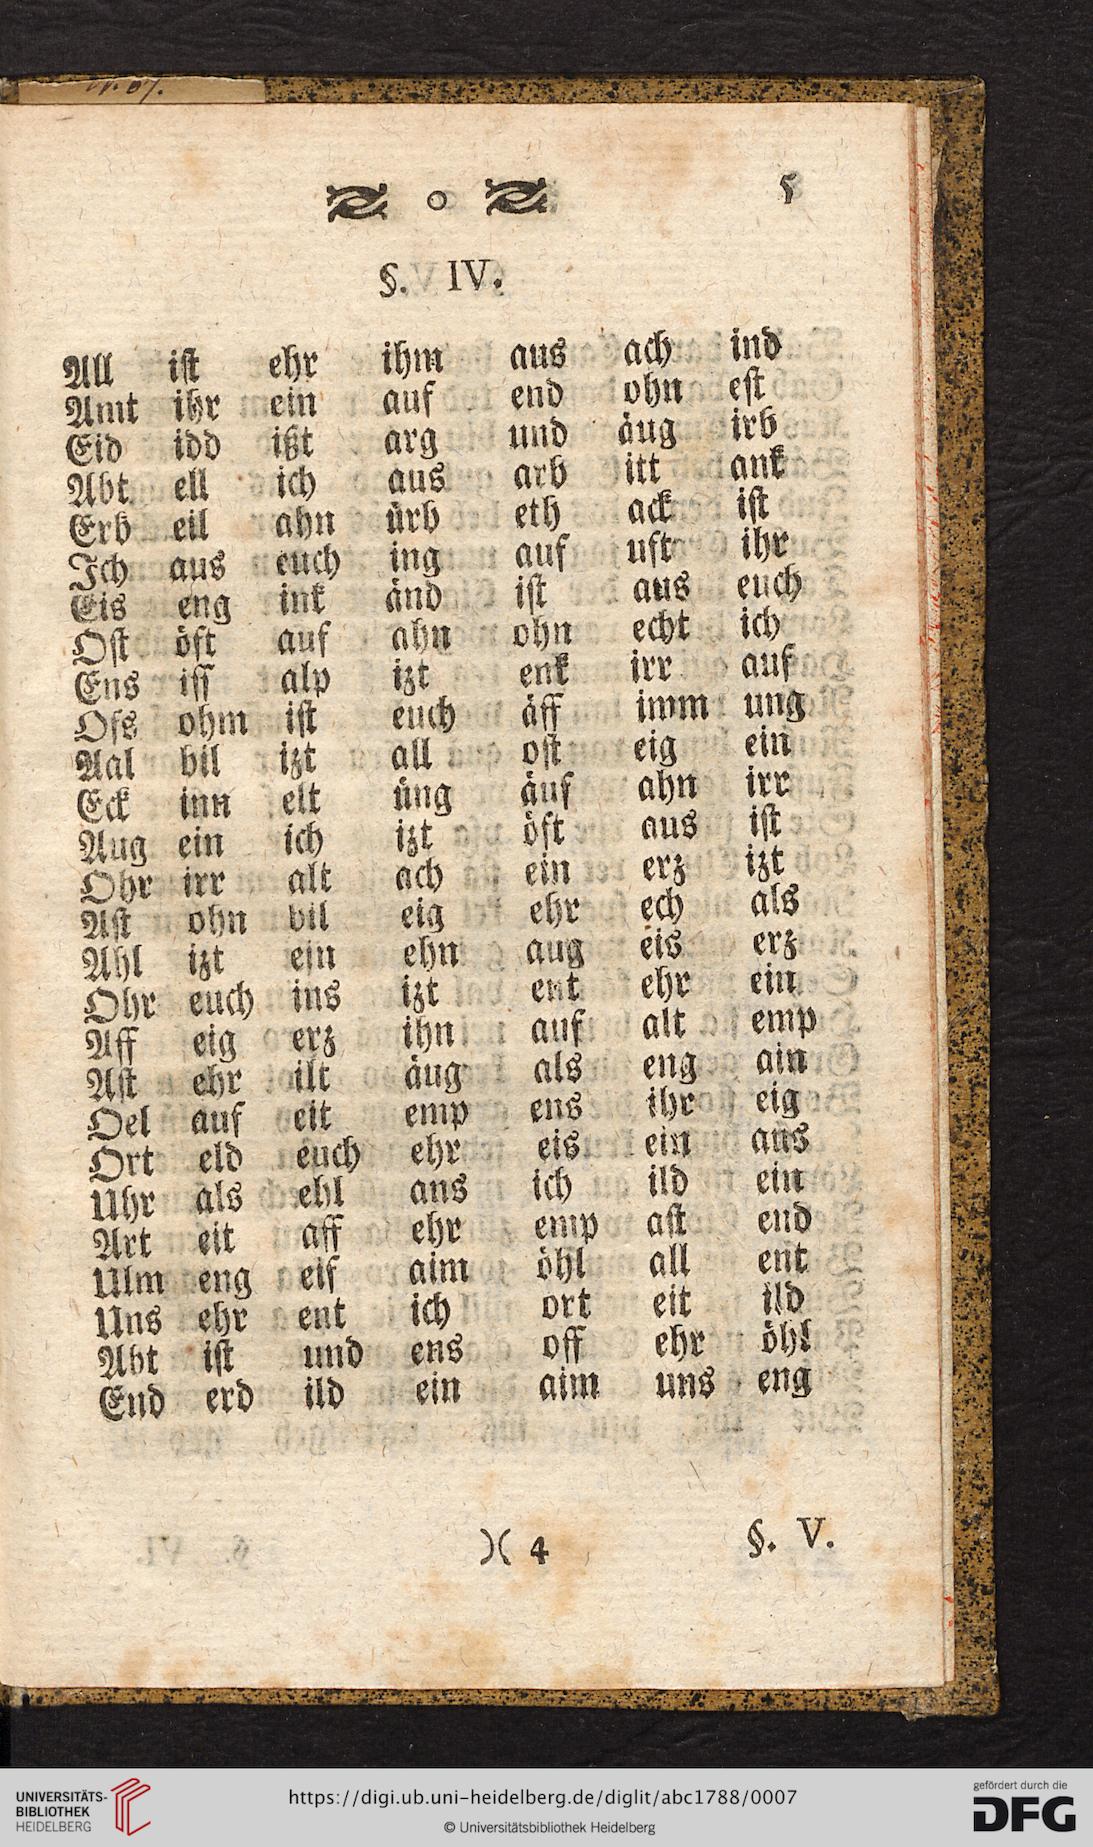 o 5
§. IV.
All iſt ehr ihm aus ach ind
Amt ihr ein auf end ohn eſt
Eid idd ißt arg und äug irb
Abt ell ich aus arb itt ank
Erb eil ahn ürb eth ack iſt
Ich aus euch ing auf uft ihr
Eis eng ink änd iſt aus euch
Oſt öft auf ahn ohn echt ich
Ens iſſ alp izt enk irr auf
Ofs ohm iſt euch äff imm ung
Aal bil izt all oſt eig ein
Eck inn elt üng äuf ahn irr
Aug ein ich izt öft aus iſt
Ohr irr alt ach ein erz izt
Aſt ohn bil eig ehr ech als
Ahl izt ein ehn aug eis erz
Ohr euch ins izt ent ehr ein
Aff eig erz ihn auf alt emp
Aſt ehr ilt äug als eng ain
Oel auf eit emp ens ihr eig
Ort eld euch ehr eis ein aus
Uhr als ehl ans ich ild ein
Art eit aff ehr emp aſt end
Ulm eng eif aim öhl all ent
Uns ehr ent ich ort eit ild
Abt iſt und ens off ehr öhl
End erd ild ein aim uns eng
)( 4 §. V.
UNIVERSITÄTS-
BIBLIOTHEK
HEIDELBERG
https://digi.ub.uni-heidelberg.de/diglit/abc1788/0007
© Universitätsbibliothek Heidelberg
gefördert durch die
DFG